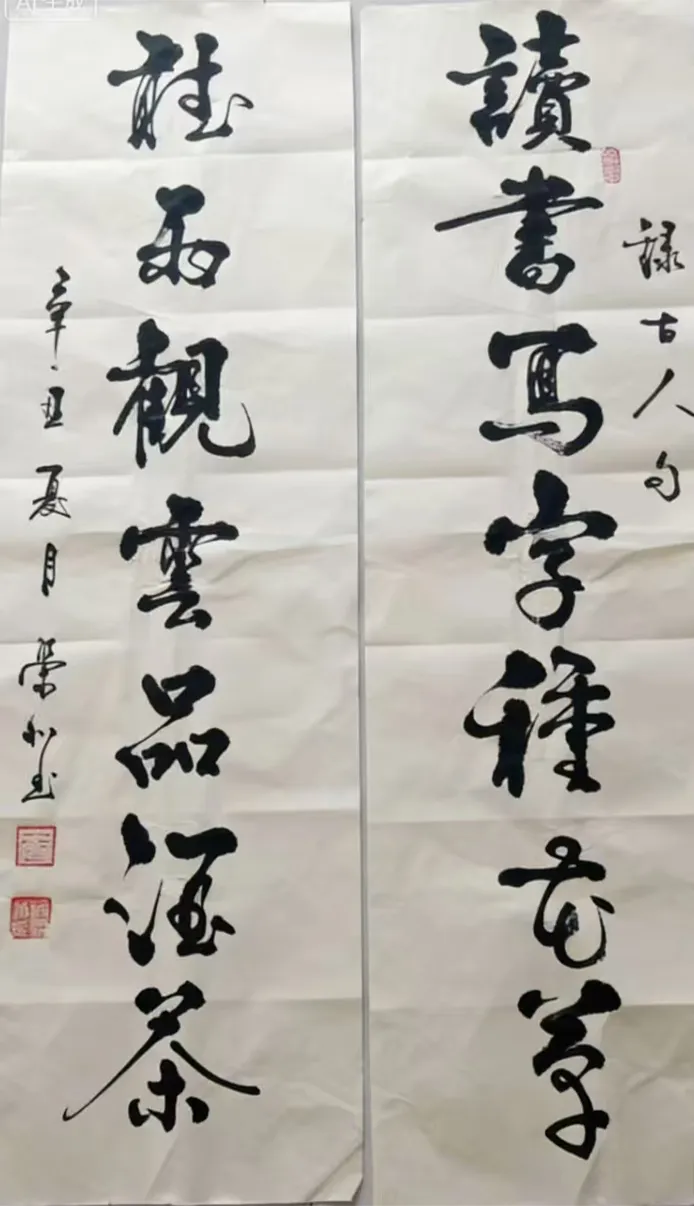 録古人句
讀書寫字種花草
聽雨觀雲品酒茶
辛丑夏月榮
AI生成